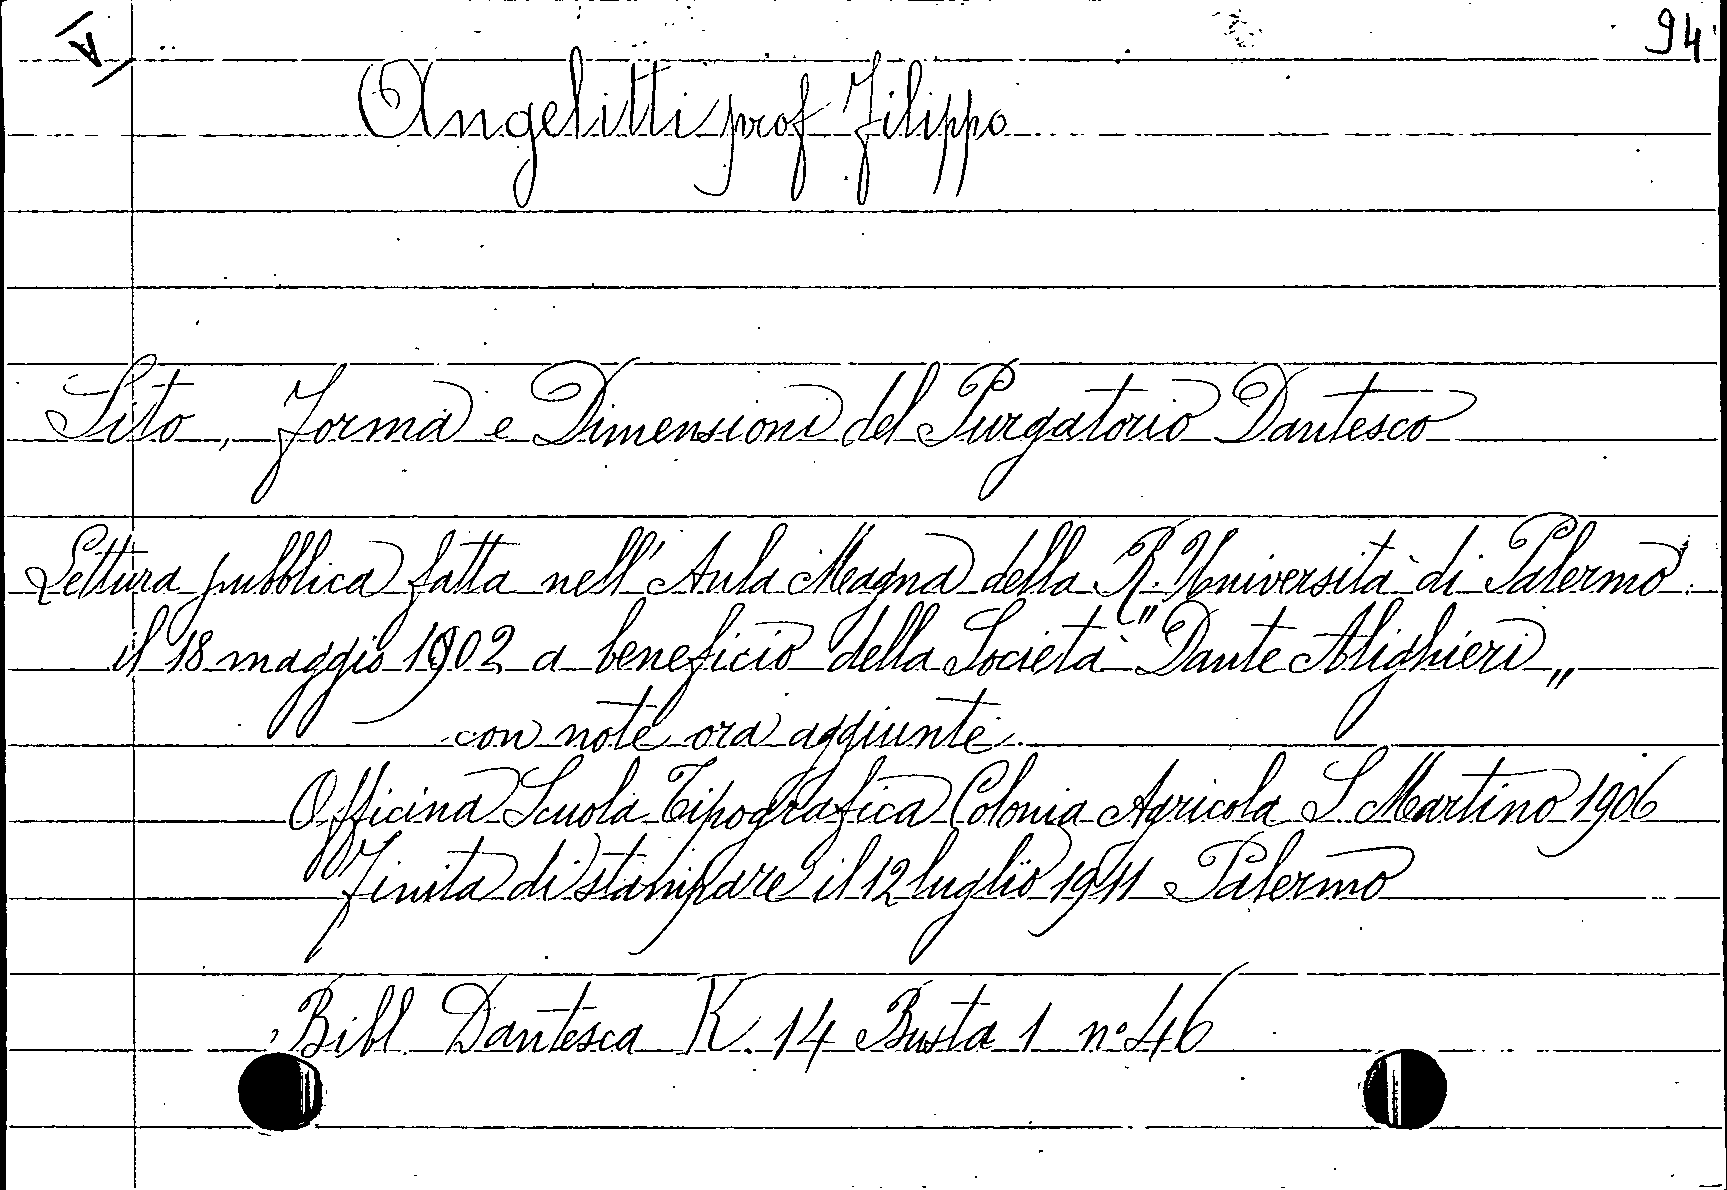 94
Angelitti prof Filippo
Sito, Forma e Dimensioni del Purgatorio Dantesco
Lettura pubblica fatta nell'Aula Magna della R. Università di Palermo
il 18 maggio 1902 a beneficio della Società "Dante Alighieri„
con note ora aggiunte
Officina Scuola Tipografica Colonia Agricola S Martino 1906
Finita di stampare il 12 luglio 1911 Palermo
Bibl. Dantesca K. 14 Busta 1 n° 46